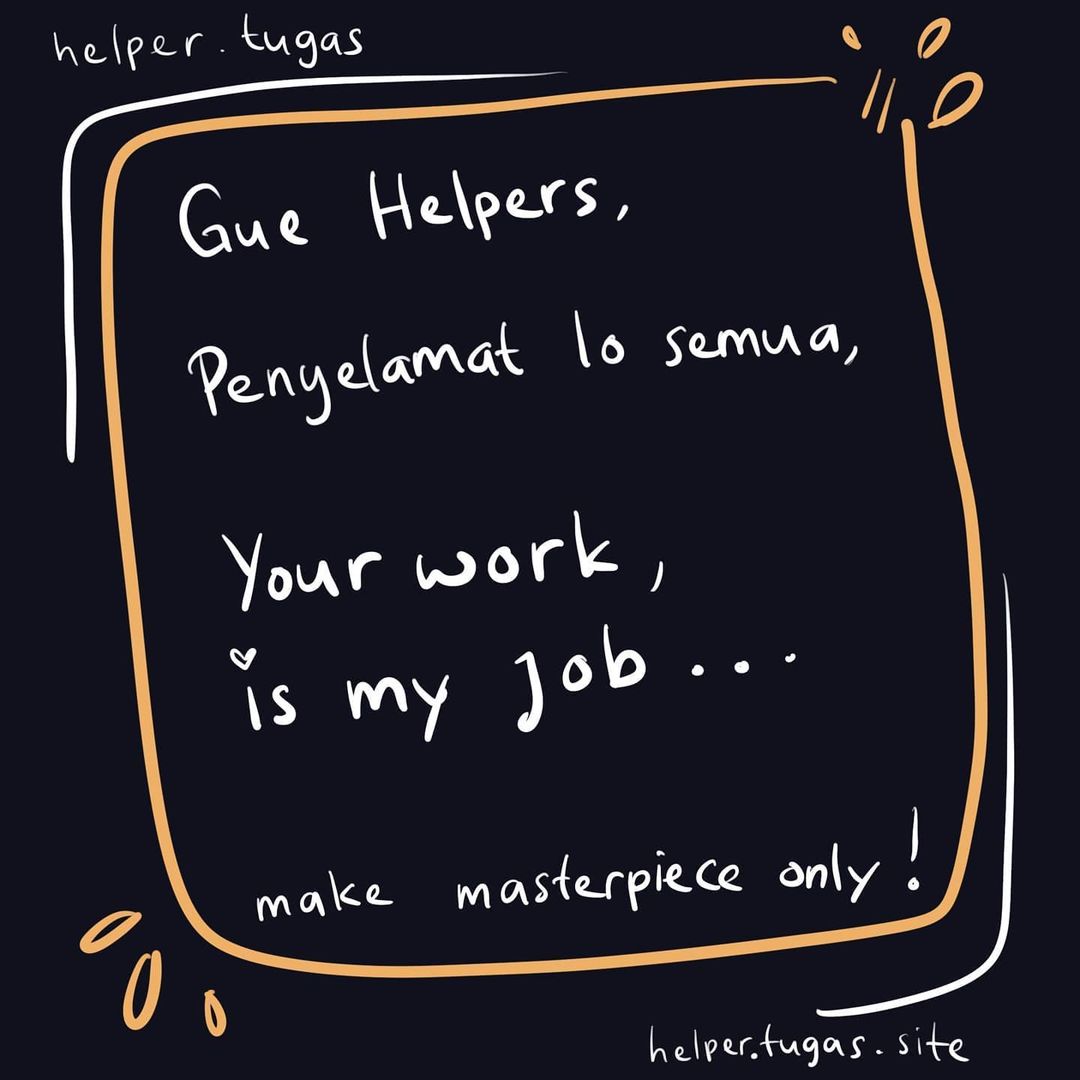 helper.tugas
Gue Helpers,
Penyelamat lo semua,
Your work,
is my job...
make masterpiece only!
helper.tugas.site